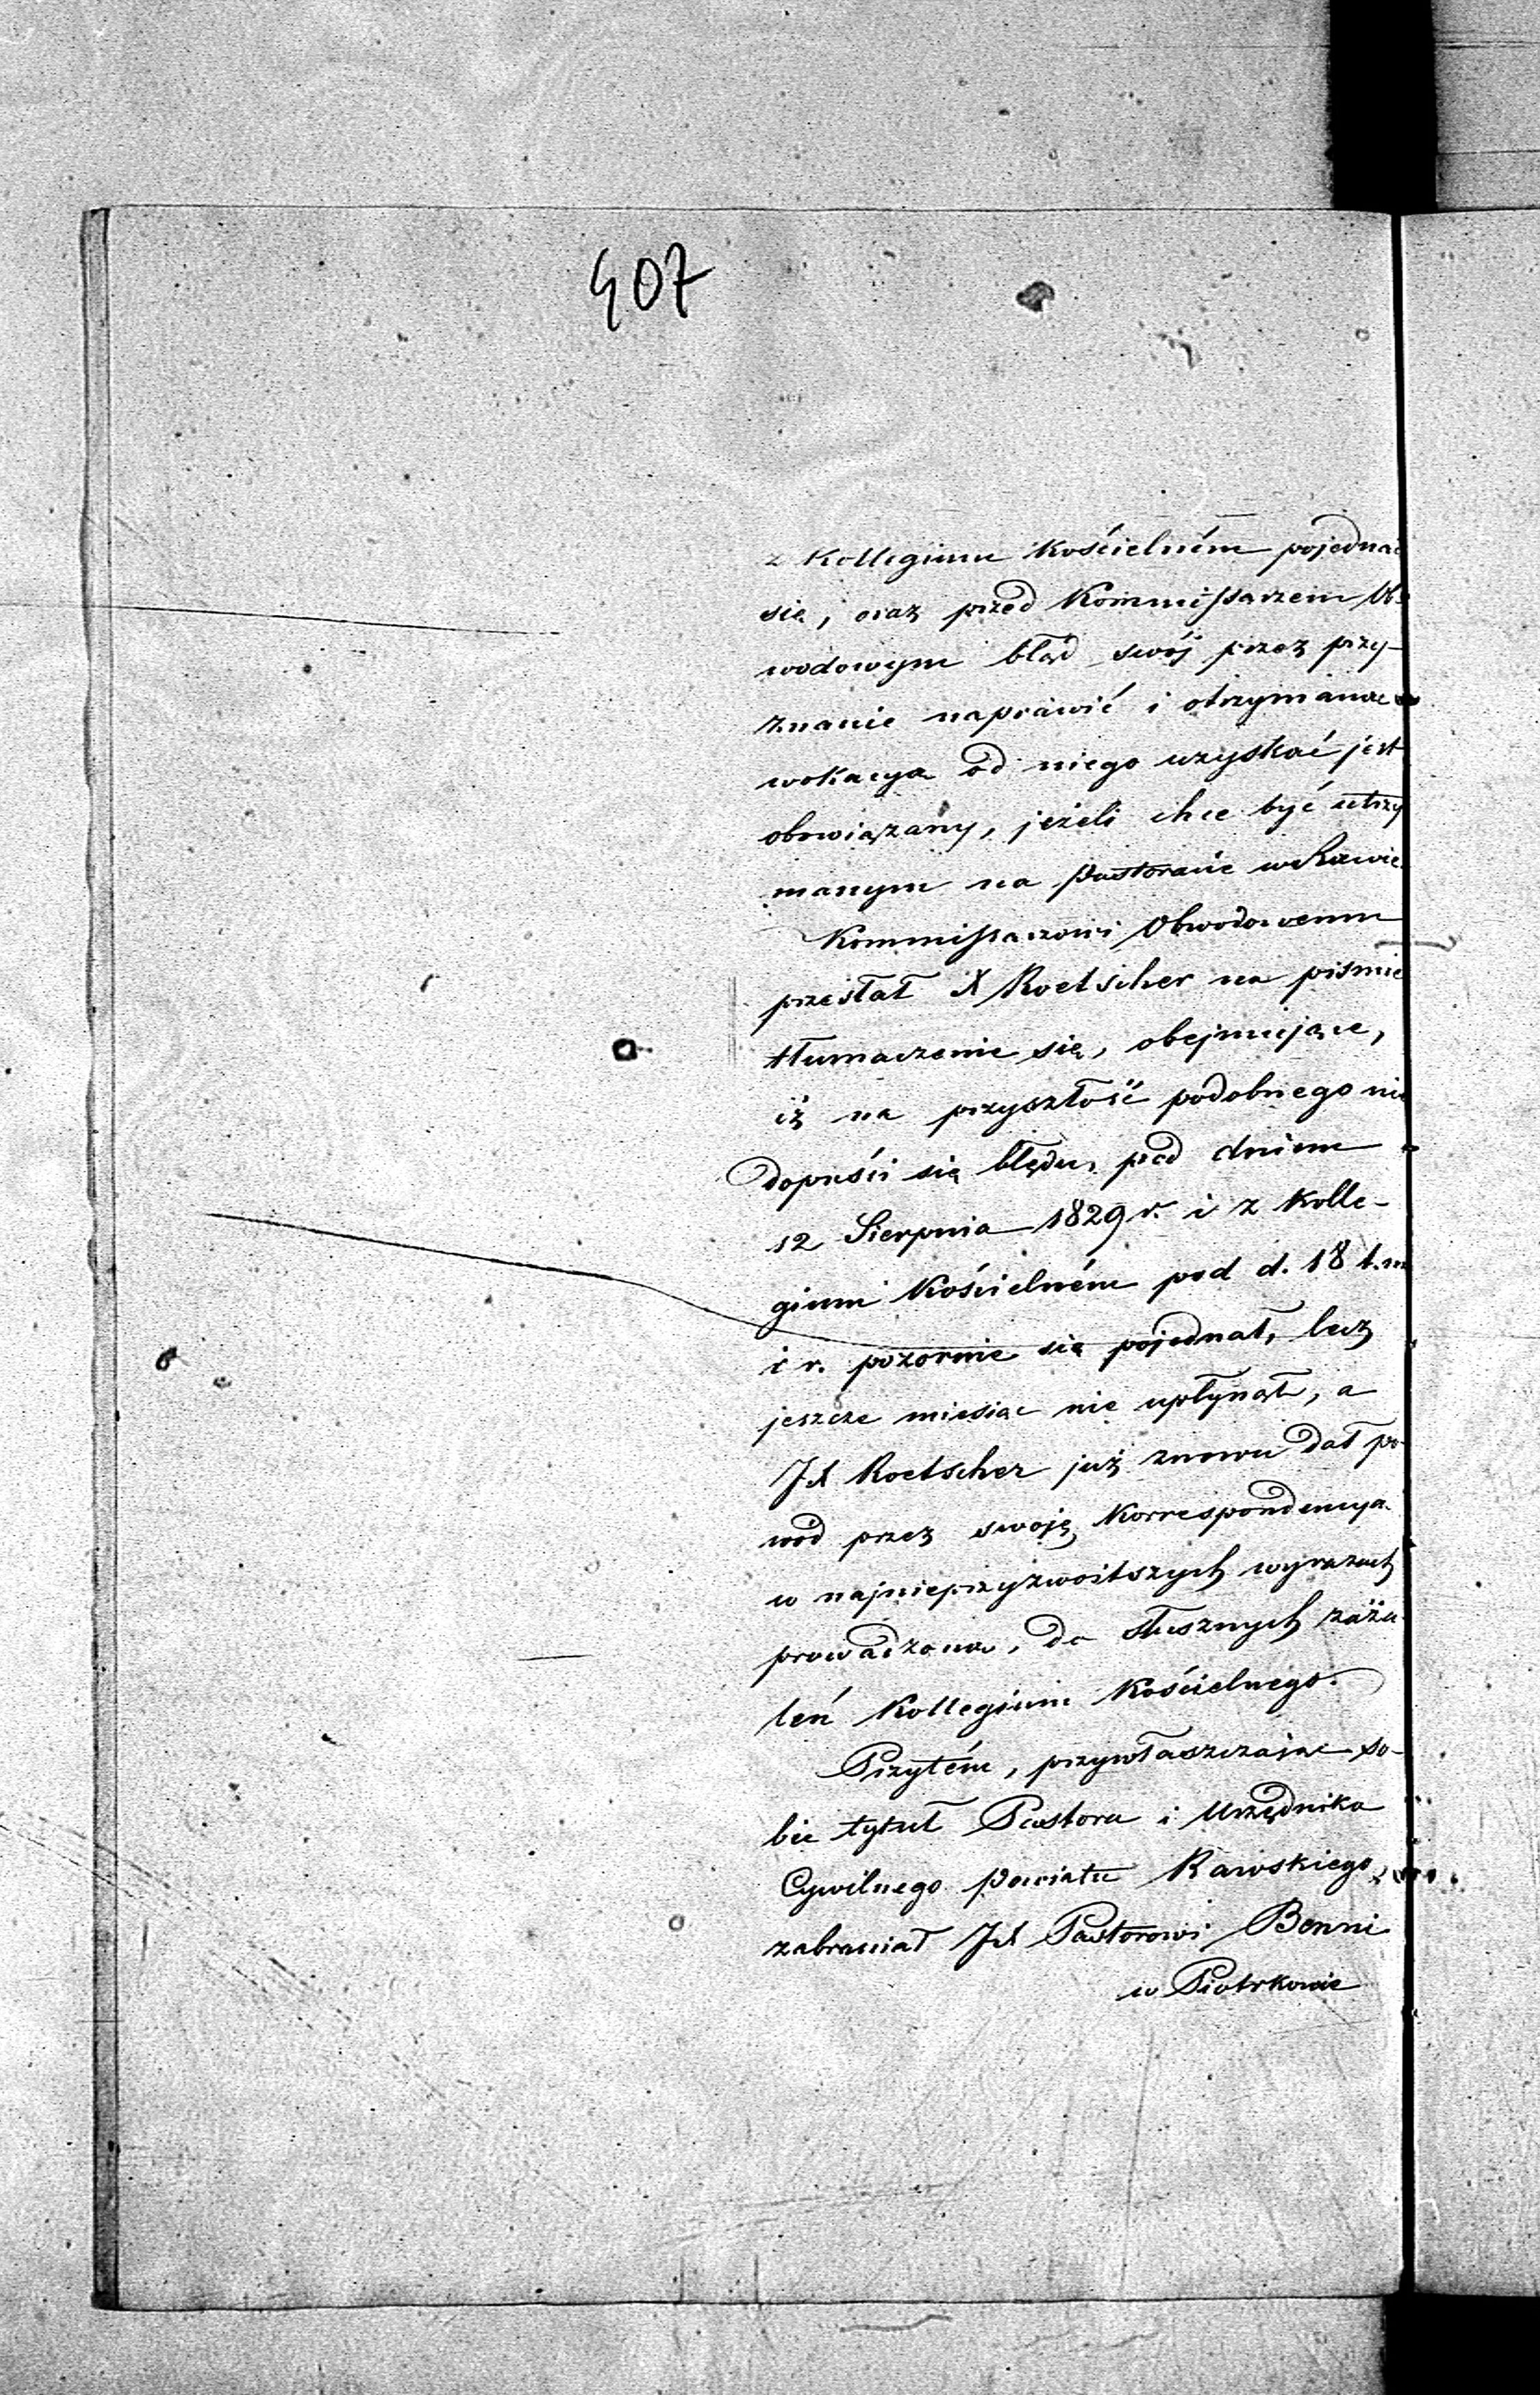 407
z Kollegium Kościelném pojednać
się, oraz przed Kommissarzem Ob-
wodowym błąd swój przez przy-
znanie naprawić i otrzymane
wokacya od niego uzyskać jest
obowiązany, jeżeli chce być utrzy
manym na Pastoracie w Rawie.
Kommissarzowi Obwodowemu
przesłał X Roetscher na piśmie
tłumaczenie się, obejmujące,
iż na przyszłość podobnego nie
dopuści się błędu, pod dniem
12 Sierpnia 1829 r. i z Kolle-
gium Kościelném pod d. 18 t. m
i r. pozornie się pojednał, lecz
jeszcze miesiąc nie upłynął, a
JX Roetscher już znowu dał po-
wód przez swoję Korrespondencya
w najnieprzyzwoitszych wyrazach
prowadzona, do słusznych zaża-
leń Kollegium Kościelnego.
Przytém, przywłaszczając so-
bie tytuł Pastora i Urzędnika
Cywilnego Powiatu Rawskiego,
zabraniał JX Pastorowi Benni
w Piotrkowie